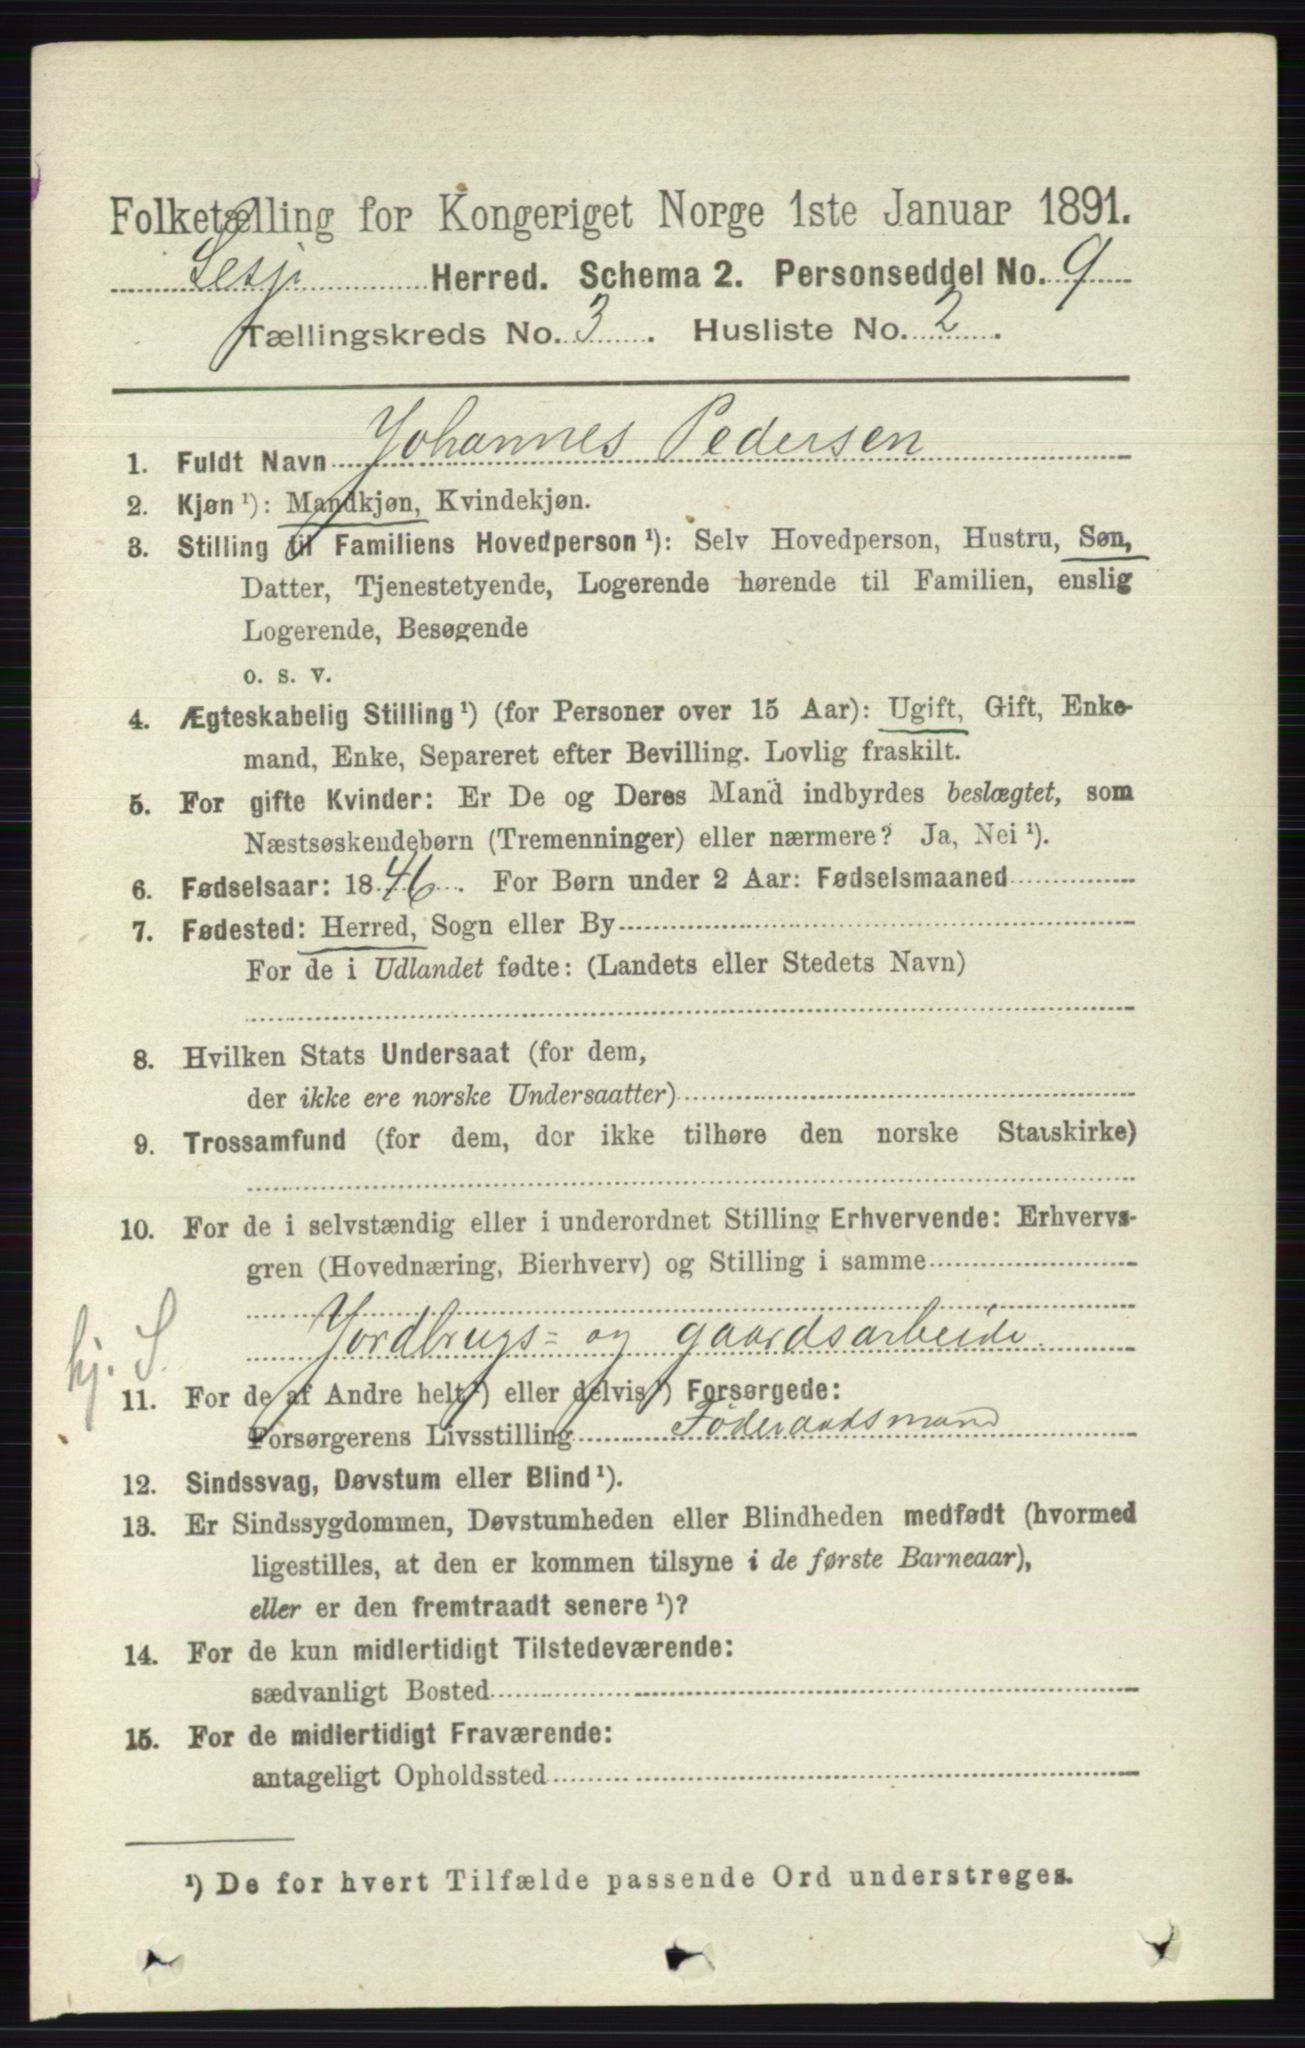 Folketælling for Kongeriget Norge 1ste Januar 1891.
Lesje Herred. Schema 2. Personseddel No. 9
Tællingskreds No. 3. Husliste No. 2.
1. Fuldt Navn Johannes Pedersen
2. Kjøn¹): Mandkjøn, Kvindekjøn.
3. Stilling til Familiens Hovedperson¹): Selv Hovedperson, Hustru, Søn,
Datter, Tjenestetyende, Logerende hørende til Familien, enslig
Logerende, Besøgende
o. s. v.
4. Ægteskabelig Stilling¹) (for Personer over 15 Aar): Ugift, Gift, Enke-
mand, Enke, Separeret efter Bevilling. Lovlig fraskilt.
5. For gifte Kvinder: Er De og Deres Mand indbyrdes beslægtet, som
Næstsøskendebørn (Tremenninger) eller nærmere? Ja, Nei¹).
6. Fødselsaar: 1846. For Børn under 2 Aar: Fødselsmaaned
7. Fødested: Herred, Sogn eller By
For de i Udlandet fødte: (Landets eller Stedets Navn)
8. Hvilken Stats Undersaat (for dem,
der ikke ere norske Undersaatter)
9. Trossamfund (for dem, der ikke tilhøre den norske Statskirke)
10. For de i selvstændig eller i underordnet Stilling Erhvervende: Erhvervs-
gren (Hovednæring, Bierhverv) og Stilling i samme
Jordbrugs- og gaardsarbeide.
hj. S.
11. For de af Andre helt¹) eller delvis¹) Forsørgede:
Forsørgerens Livsstilling Føderaadsmand
12. Sindssvag, Døvstum eller Blind¹).
13. Er Sindssygdommen, Døvstumheden eller Blindheden medfødt (hvormed
ligestilles, at den er kommen tilsyne i de første Barneaar),
eller er den fremtraadt senere¹)?
14. For de kun midlertidigt Tilstedeværende:
sædvanligt Bosted
15. For de midlertidigt Fraværende:
antageligt Opholdssted
¹) De for hvert Tilfælde passende Ord understreges.